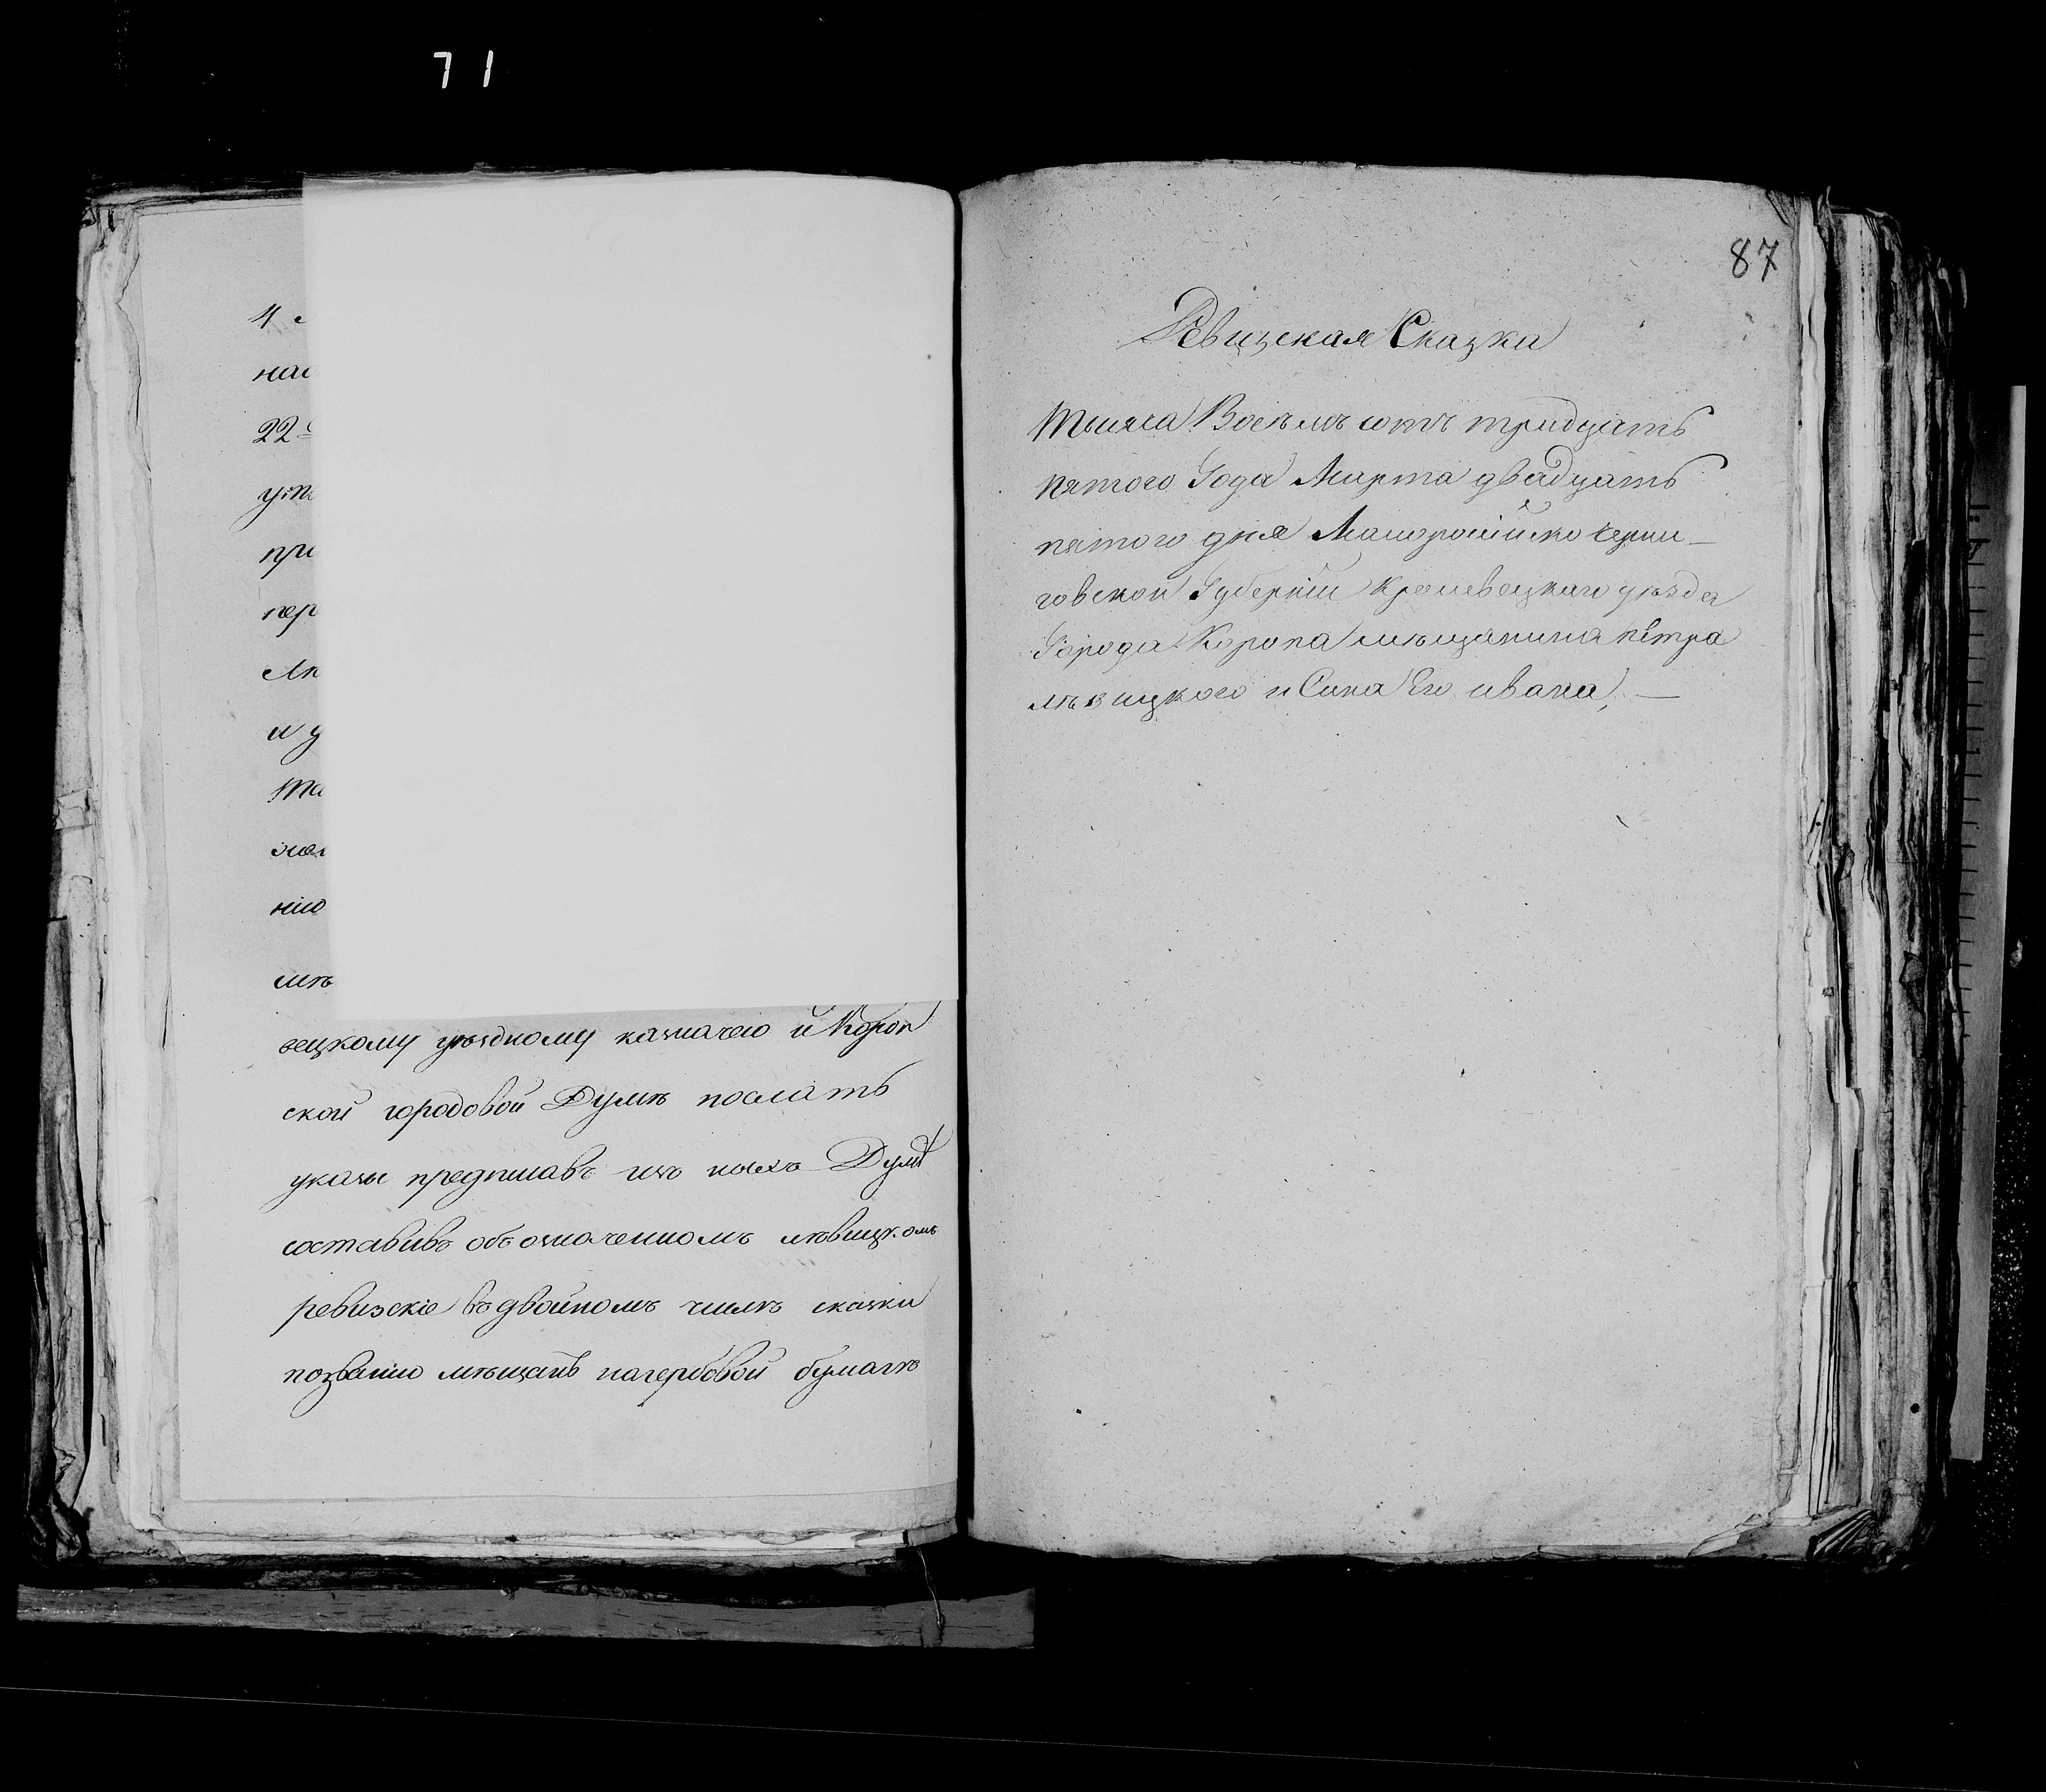 71
4
ниі
22
при
пер
и у
нію
мѣ
вецкому уѣздному казначею и Короп
ской городовой Думѣ послать
указы предписавъ изъ коихъ Думѣ
составивъ объ означенномъ Лѣвицкомъ
ревизскіе въ двойномъ числѣ сказки
по званію мѣщанъ на гербовой бумагѣ
87
Ревизская Сказка
тысяча Восемъ сотъ тридцать
пятого Года Марта двадцать
пятого дня Малоросійско Черни-
говской Губерніи Кролевецкаго уѣзда
Города Коропа мѣщанина петра
лѣвицкого и Сина Его ивана, —